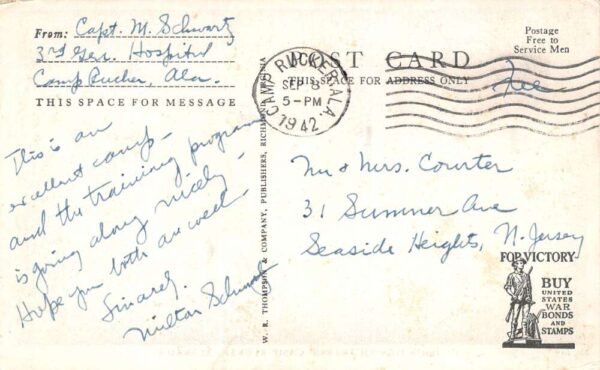 From: Capt. M. Schwartz
3rd Gen. Hospital
Camp Rucker, Ala.
THIS SPACE FOR MESSAGE
This is an
excellent camp -
and the training program
is going along nicely -
Hope you both are well -
Sincerely,
Milton Schwartz
W. R. THOMPSON & COMPANY, PUBLISHERS, RICHMOND, VIRGINIA
POST CARD
THIS SPACE FOR ADDRESS ONLY
CAMP RUCKER, ALA.
SEP 8
5-PM
1942
Postage
Free to
Service Men
Free
Mr & Mrs. Courter
31 Summer Ave
Seaside Heights, N. Jersey
FOR VICTORY
BUY
UNITED
STATES
WAR
BONDS
AND
STAMPS